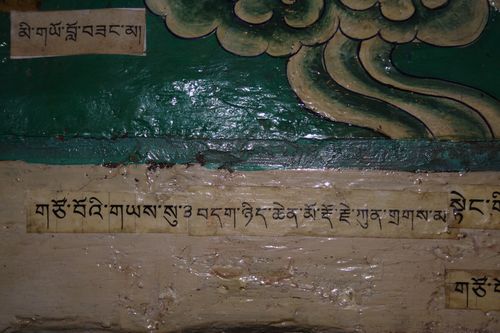 མི་གཡོ་བློ་བཟང་མ།
གཙོ་བོའི་གཡས་སུ་༣བདག་ཉིད་ཆེན་མོ་རྡོ་རྗེ་ཀུན་གྲགས་མ
སྟེང་
གཙོ་བོ